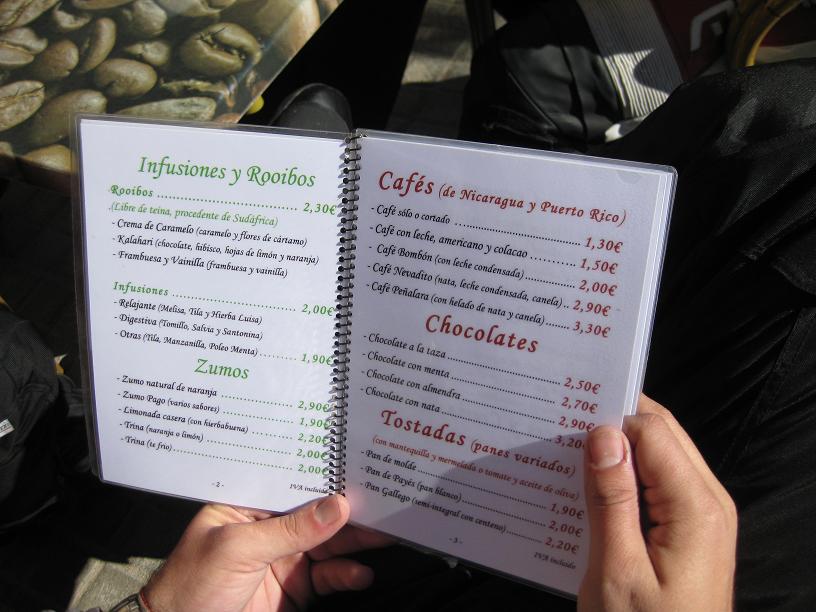 Infusiones y Rooibos
Rooibos ........ 2,30€
(Libre de teina, procedente de Sudáfrica)
- Crema de Caramelo (caramelo y flores de cártamo)
- Kalahari (chocolate, hibisco, hojas de limón y naranja)
- Frambuesa y Vainilla (frambuesa y vainilla)
Infusiones ........ 2,00€
- Relajante (Melisa, Tila y Hierba Luisa)
- Digestiva (Tomillo, Salvia y Santonina)
- Otras (Tila, Manzanilla, Poleo Menta) ........ 1,90€
Zumos
- Zumo natural de naranja ........ 2,90€
- Zumo Pago (varios sabores) ........ 1,90€
- Limonada casera (con hierbabuena) ........ 2,20€
- Trina (naranja o limón) ........ 2,00€
- Trina (te frio) ........ 2,00€
- 2 -
IVA incluido
Cafés (de Nicaragua y Puerto Rico)
- Café sólo o cortado ........ 1,30€
- Café con leche, americano y colacao ........ 1,50€
- Café Bombón (con leche condensada) ........ 2,00€
- Café Nevadito (nata, leche condensada, canela) .. 2,90€
- Café Peñalara (con helado de nata y canela) ... 3,30€
Chocolates
- Chocolate a la taza ........ 2,50€
- Chocolate con menta ........ 2,70€
- Chocolate con almendra ........ 2,90€
- Chocolate con nata ........ 3,20
Tostadas (panes variados)
(con mantequilla y mermelada o tomate y aceite de oliva)
- Pan de molde ........ 1,90€
- Pan de Payés (pan blanco) ........ 2,00€
- Pan Gallego (semi-integral con centeno) ........ 2,20€
- 3 -
IVA incluido